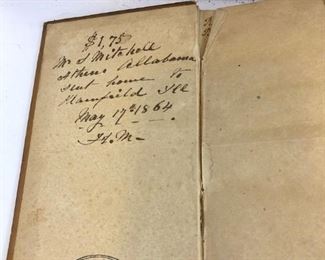 $1,75
Wm S Mitchell
Athens Allabama
sent home to
Plainfield Ill
May 17th 1864
H.M—